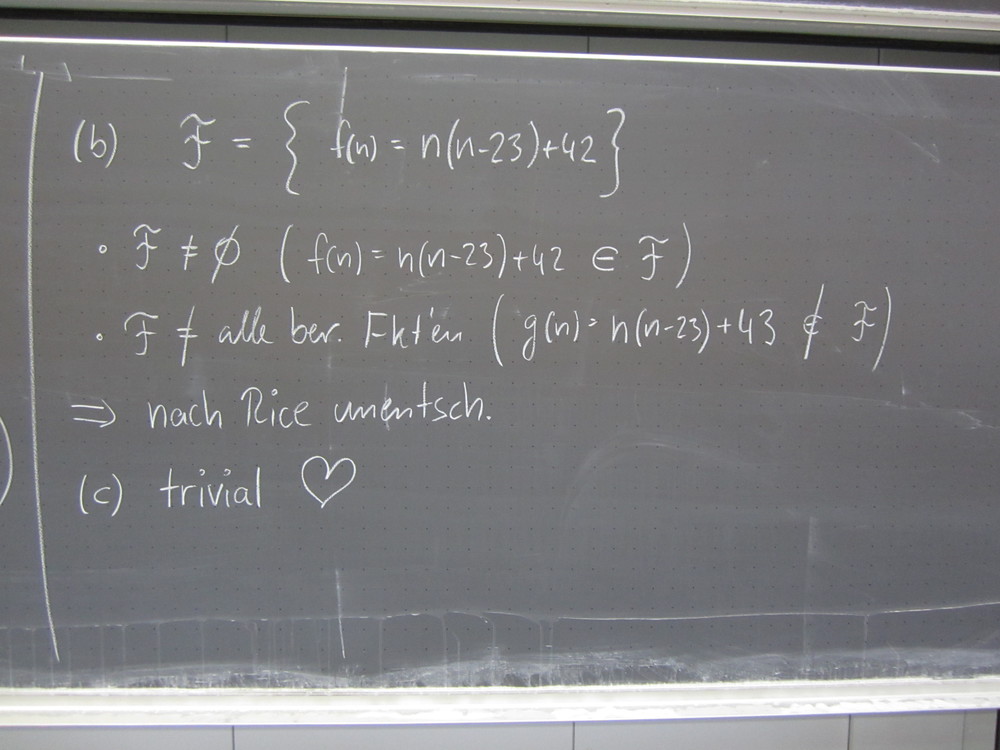 (b) ℱ = { f(n) = n(n-23)+42 }
• ℱ ≠ ∅ ( f(n) = n(n-23)+42 ∈ ℱ )
• ℱ ≠ alle ber. Fkt'en ( g(n) = n(n-23)+43 ∉ ℱ )
⇒ nach Rice unentsch.
(c) trivial ♡